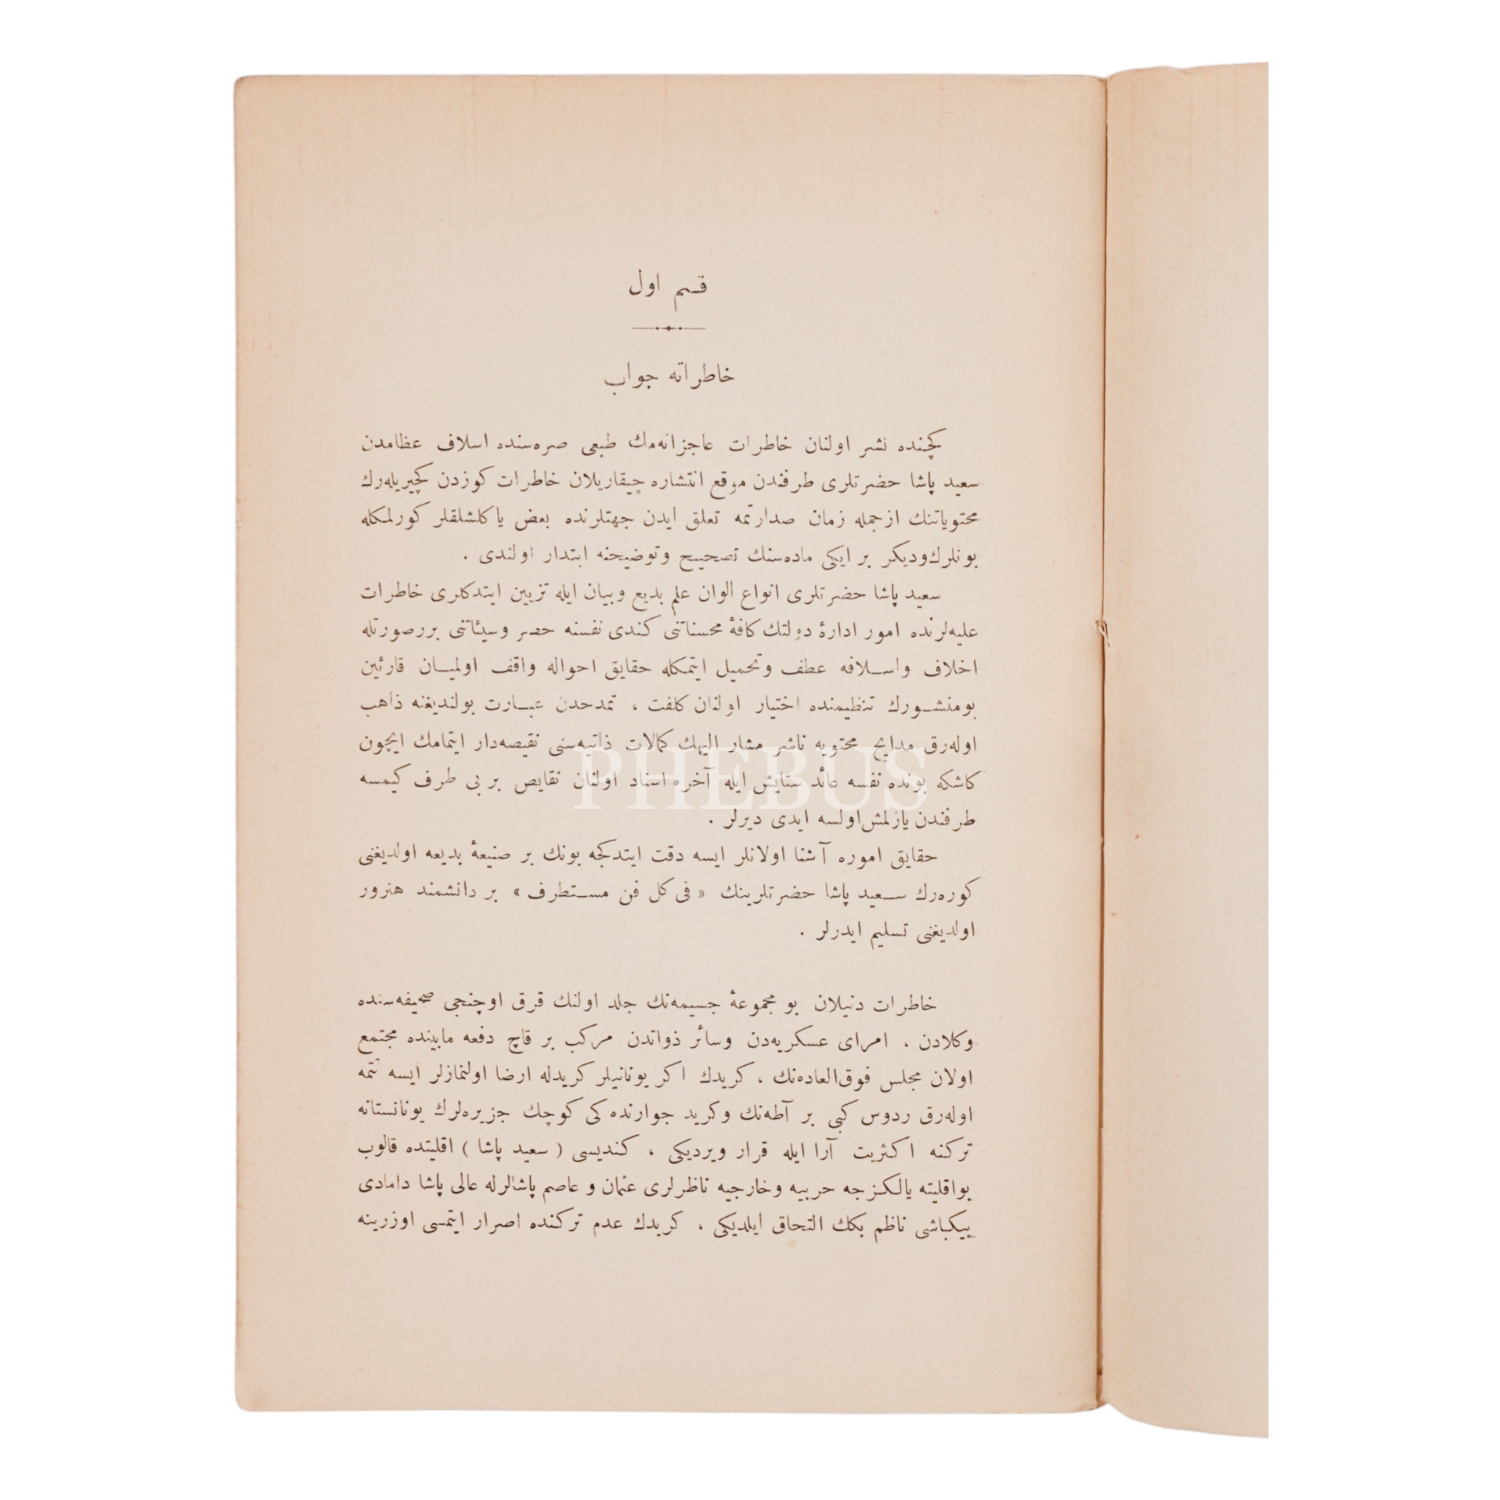 قسم اول
خاطراته جواب
كچنده نشر اولنان خاطرات عاجزانه‌مك طبعی صره‌سنده اسلاف عظامدن
سعيد پاشا حضرتلری طرفندن موقع انتشاره چيقاريلان خاطرات كوزدن كچيريله‌رك
محتوياتنك ازجمله زمان صدارتمه تعلق ايدن جهتلرنده بعض ياكلشلقلر كورلمكله
بونلرك‌وديكر بر ايكی ماده‌سنك تصحيح وتوضيحنه ابتدار اولندی .
سعيد پاشا حضرتلری انواع الوان علم بديع وبيان ايله تزيين ايتدكلری خاطرات
عليه‌لرنده امور ادارهٔ دولتك كافهٔ محسناتنی كندی نفسنه حصر وسيئاتنی بررصورتله
اخلاف واسلافه عطف وتحميل ايتمكله حقايق احواله واقف اولميان قارئين
بومنشورك تنظيمنده اختيار اولنان كلفت ، تمدحدن عبارت بولنديغنه ذاهب
اوله‌رق مدايح محتويه ناشر مشار اليهك كمالات ذاتيه‌سنی نقيصه‌دار ايتمامك ايچون
كاشكه بونده نفسه عائد ستايش ايله آخره اسناد اولنان نقايص بر بی طرف كيمسه
طرفندن يازلمش‌اولسه ايدی ديرلر .
حقايق اموره آشنا اولانلر ايسه دقت ايتدكجه بونك بر صنيعهٔ بديعه اولديغنی
كوره‌رك سعيد پاشا حضرتلرينك « فی كل فن مستطرف » بر دانشمند هنرور
اولديغنی تسليم ايدرلر .
خاطرات دنيلان بو مجموعهٔ جسيمه‌نك جلد اولنك قرق اوچنجی صحيفه‌سنده
وكلادن ، امرای عسكريه‌دن وسائر ذواتدن مركب بر قاچ دفعه مابينده مجتمع
اولان مجلس فوق‌العاده‌نك ، كريدك اكر يونانيلر كريدله ارضا اولنمازلر ايسه تتمه
اوله‌رق ردوس كبی بر آطه‌نك وكريد جوارنده كی كوچك جزيره‌لرك يونانستانه
تركنه اكثريت آرا ايله قرار ويرديكی ، كنديسی ( سعيد پاشا ) اقليتده قالوب
بواقليته يالكزجه حربيه وخارجيه ناظرلری عثمان و عاصم پاشالرله عالی پاشا دامادی
بيكباشی ناظم بكك التحاق ايلديكی ، كريدك عدم تركنده اصرار ايتمسی اوزرينه
PHEBUS